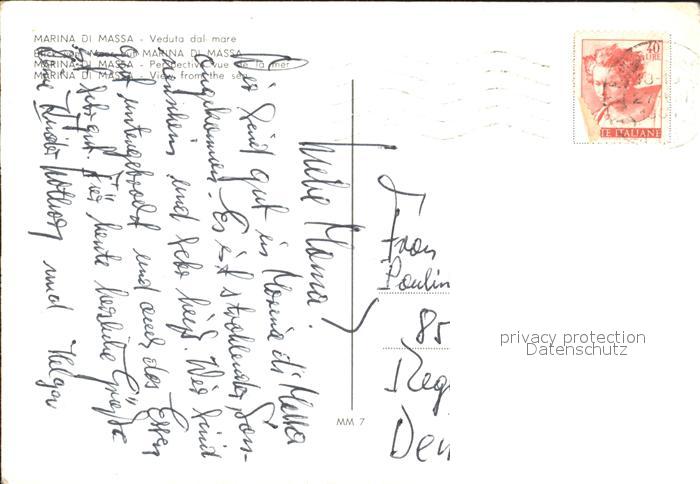 MARINA DI MASSA - Veduta dal mare
MARINA DI MASSA
MARINA DI MASSA - Perspective vue de la mer
MARINA DI MASSA - View from the sea
40
LIRE
TE ITALIANE
Liebe Mama!
Wir sind gut in Marina di Massa
angekommen. Es ist strahlender Son-
nenschein und sehr heiß. Wir sind
gut untergebracht und auch das Essen
ist sehr gut. Für heute herzliche Grüße
Deine Kinder und Helga
Frau
Paulin
85
Reg
Deu
MM 7
privacy protection
Datenschutz